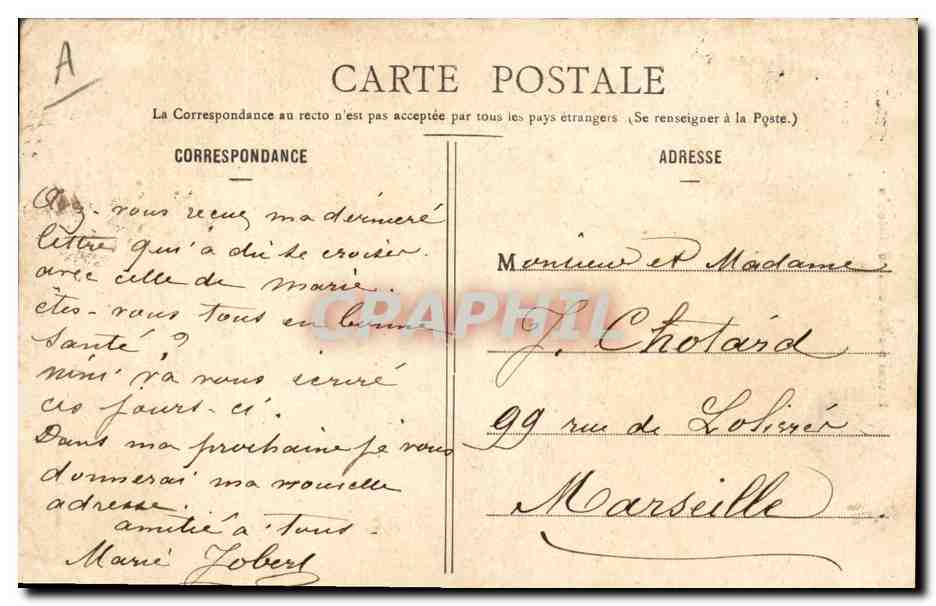 A
CARTE POSTALE
La Correspondance au recto n'est pas acceptée par tous les pays étrangers (Se renseigner à la Poste.)
CORRESPONDANCE
Avez-vous reçue ma dernière
lettre qui à dû se croiser
avec celle de Marie.
êtes-vous tous en bonne
santé ?
Nini va vous écrire
ces jours-ci.
Dans ma prochaine je vous
donnerai ma nouvelle
adresse.
amitié à tous.
Marie Jobert
ADRESSE
Monsieur et Madame
J. Chotard
99 rue de
Marseille
CRAPHIL